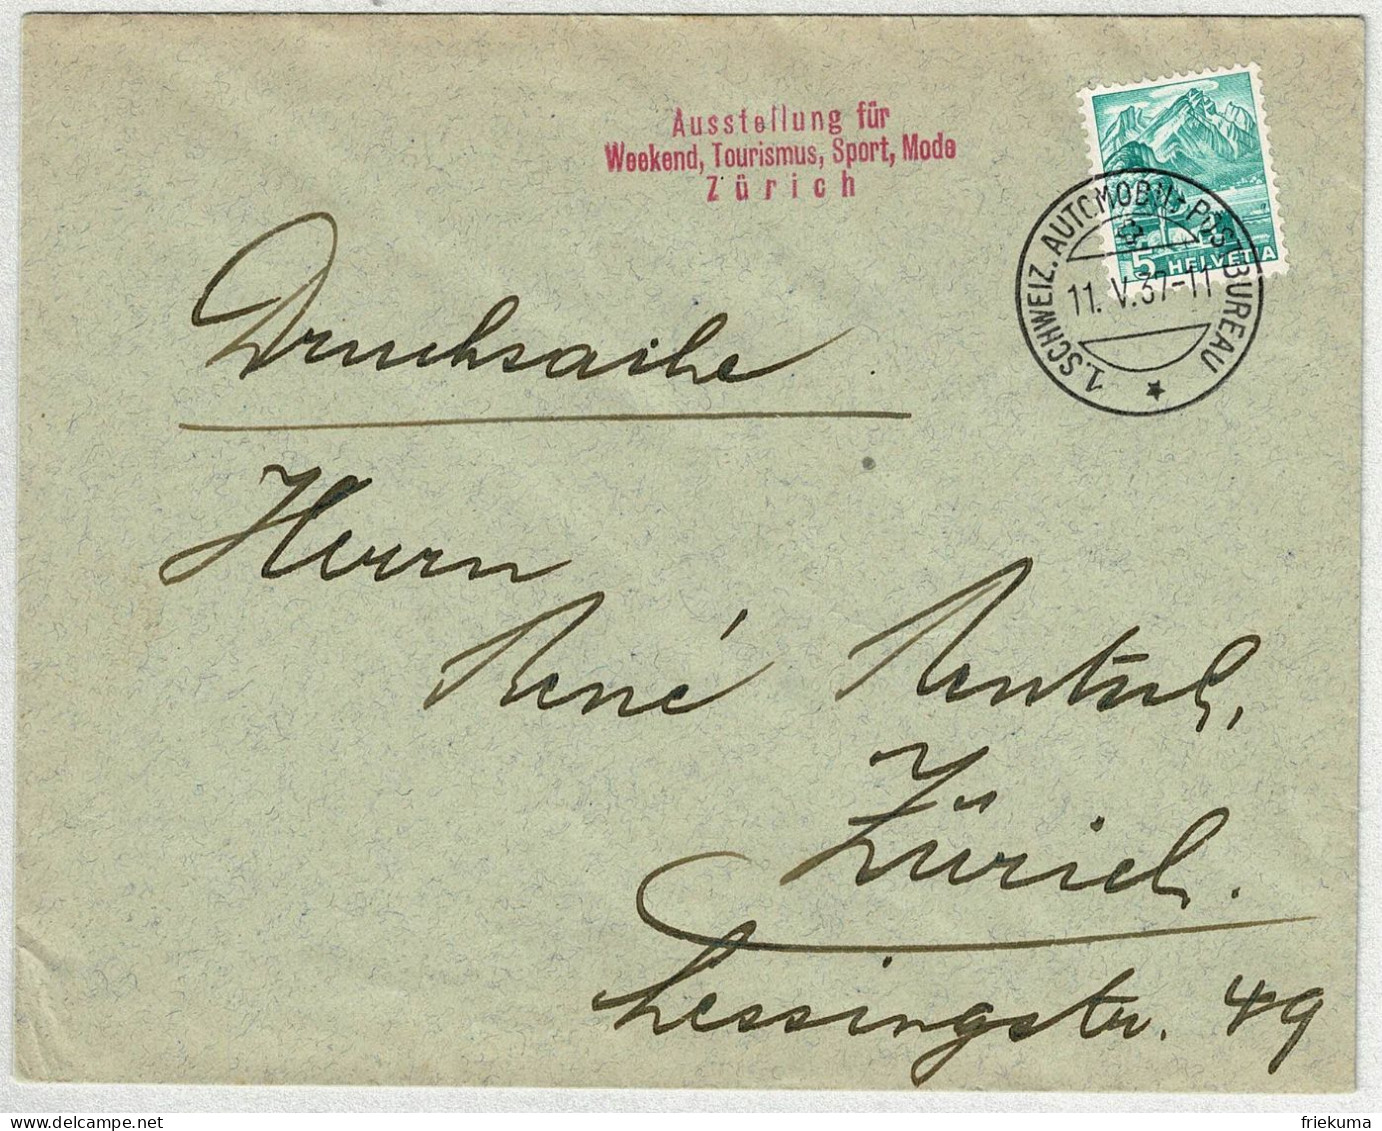 Ausstellung für
Weekend, Tourismus, Sport, Mode
Zürich
5 HELVETIA
1. SCHWEIZ. AUTOMOBIL-POSTBUREAU
11. V. 37-11
Drucksache
Herrn
René Rentsch,
Zürich.
Lessingstr. 49
www.delcampe.net
friekuma